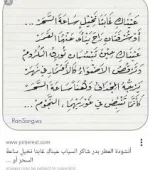 عيناكِ غابتا نخيلٍ ساعةَ السحَرْ
أو شرفتان راح ينأى عنهما القمر
عيناك حين تبسمان تورق الكروم
وترقص الأضواء كالأقمار في نهر
يرجّه المجداف وهناً ساعة السحر
كأنما تنبض في غوريهما النجوم
RanSong.ws
www.pinterest.com
أنشودة المطر بدر شاكر السياب عيناك غابتا نخيل ساعة
السحر أو ...
Images may be subject to copyright